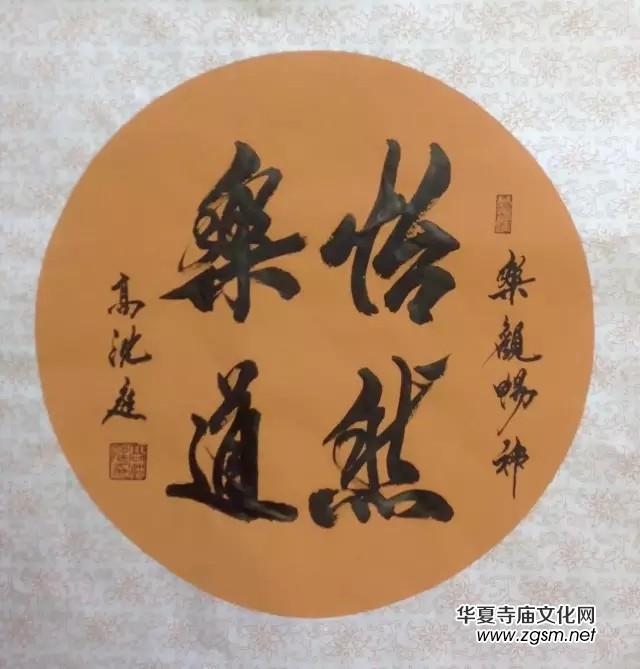 樂觀暢神
怡然
樂道
高沈庭
华夏寺庙文化网
www.zgsm.net